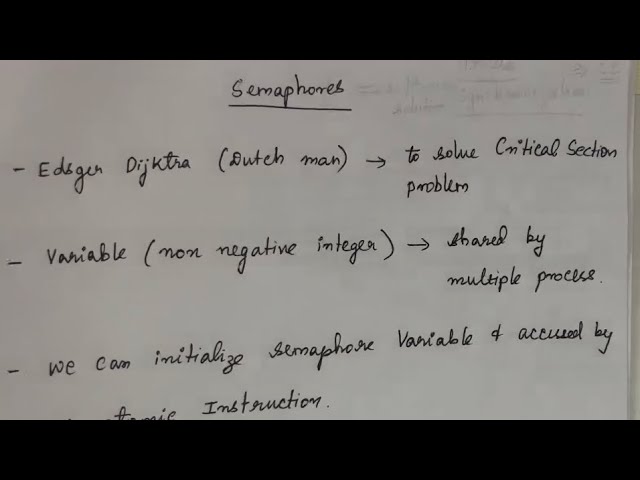 Semaphores
- Edsger Dijktra (Dutch man) → to solve Critical Section
problem
- Variable (non negative integer) → shared by
multiple process.
- we can initialize semaphore Variable & accused by
atomic Instruction.